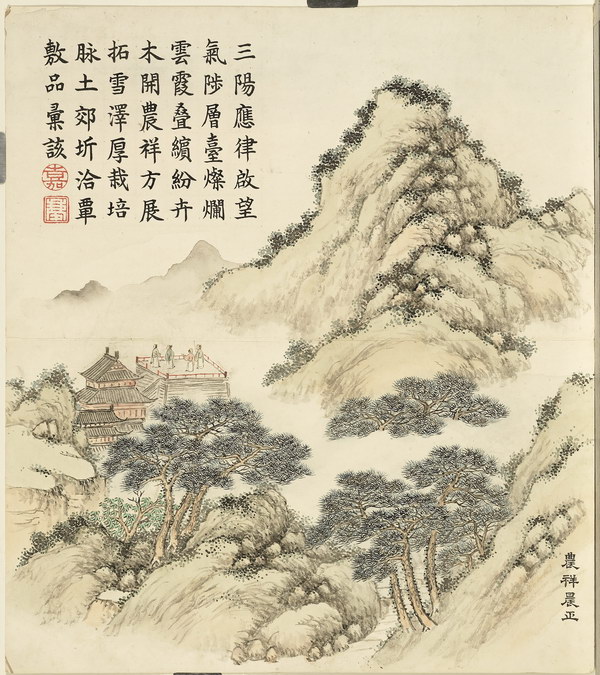 三陽應律啟望
氣陟層臺燦爛
雲霞叠繽紛卉
木開農祥方展
拓雪澤厚栽培
脉土郊圻洽覃
敷品彙該
嘉
農祥晨正